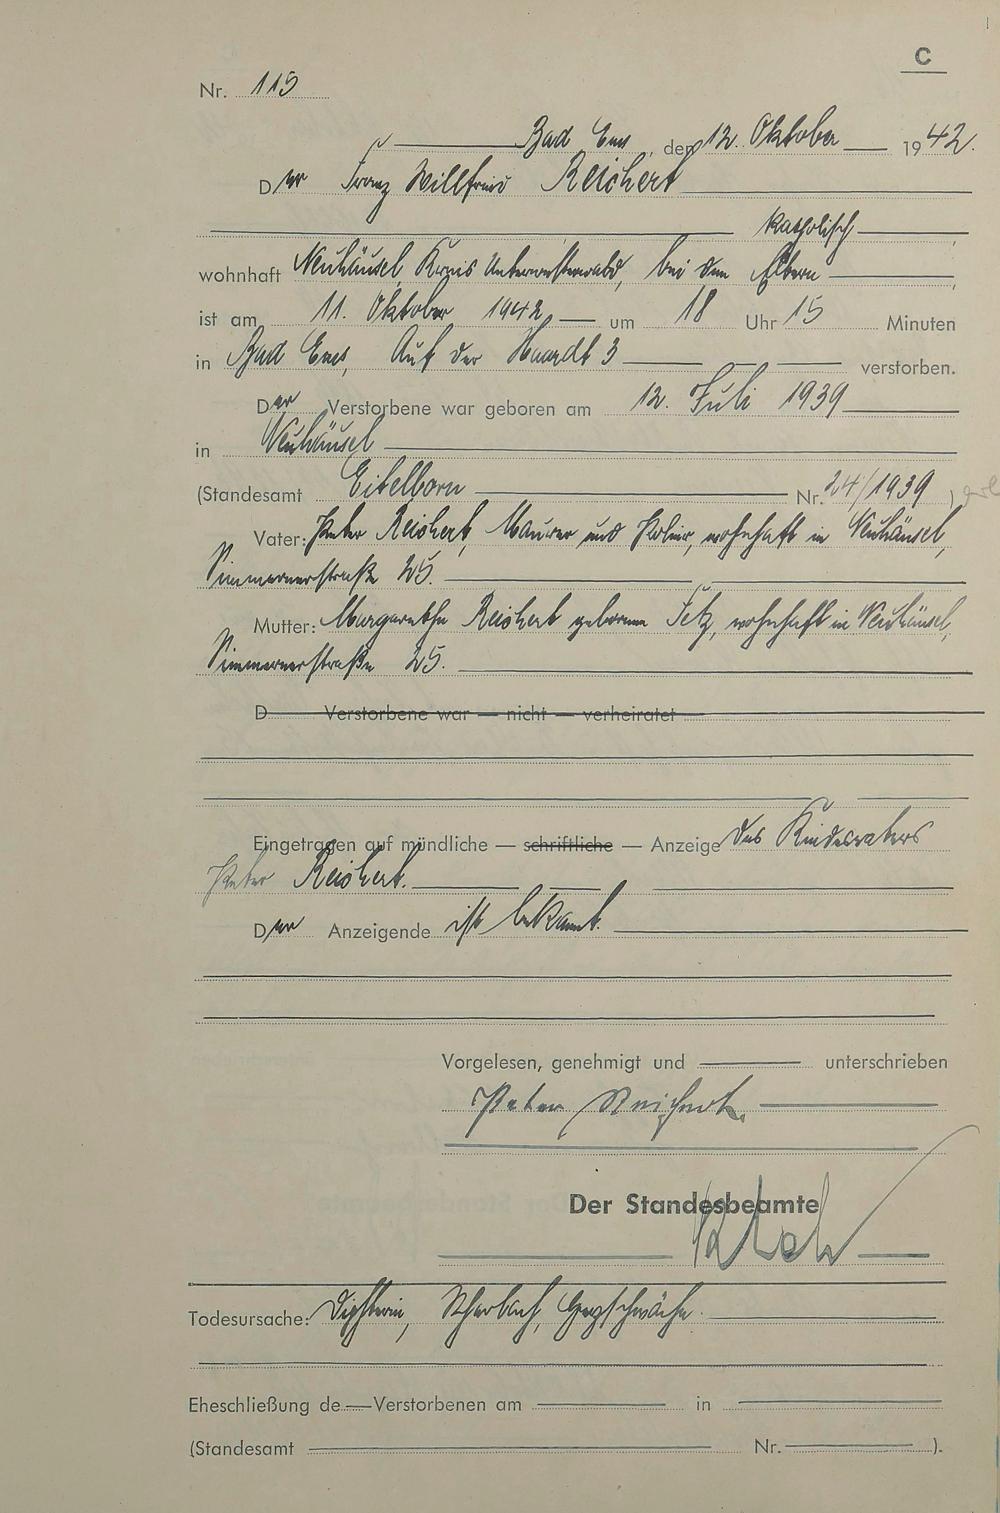 C
Nr. 115
Bad Ems, den 12. Oktober 1942.
Der Franz Willfried Reichert
katholisch
wohnhaft Neuhäusel, Kreis Unterwesterwald, bei den Eltern
ist am 11. Oktober 1942 um 18 Uhr 15 Minuten
in Bad Ems, Auf der Haardt 3 verstorben.
Der Verstorbene war geboren am 12. Juli 1939
in Neuhäusel
(Standesamt Eitelborn Nr. 24/1939)
Vater: Peter Reichert, Maurer und wohnhaft in Neuhäusel,
Simmernerstraße 25.
Mutter: Margarethe Reichert geborene wohnhaft in Neuhäusel,
Simmernerstraße 25.
D Verstorbene war — nicht — verheiratet
Eingetragen auf mündliche — schriftliche — Anzeige des Kindesvaters
Peter Reichert.
Der Anzeigende ist bekannt.
Vorgelesen, genehmigt und unterschrieben
Peter Reichert.
Der Standesbeamte
Todesursache: Diphterie, Herzschwäche.
Eheschließung de Verstorbenen am in
(Standesamt Nr. ).